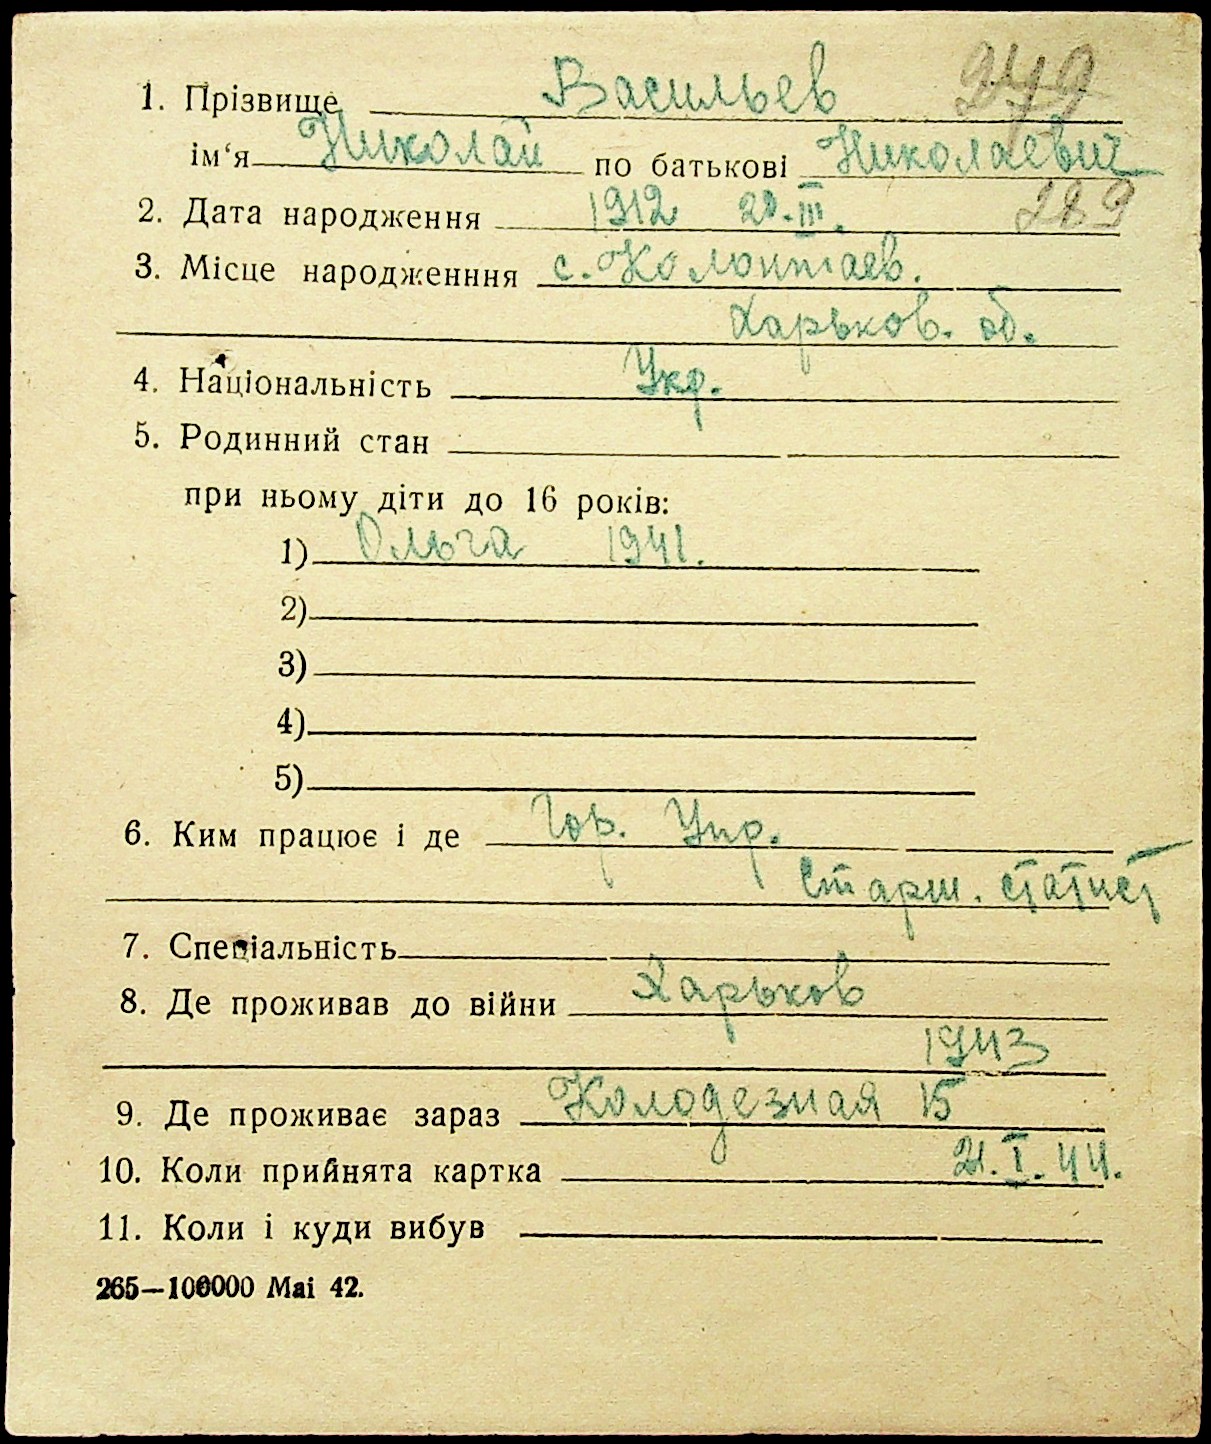 1. Прізвище Васильев 279
ім‘я Николай по батькові Николаевич
2. Дата народження 1912 20.III. 289
3. Місце народженння с. Колонтаев.
Харьков. об.
4. Національність Укр.
5. Родинний стан
при ньому діти до 16 років:
1) Ольга 1941.
2)
3)
4)
5)
6. Ким працює і де Гор. Упр.
Старш. статист
7. Спеціальність
8. Де проживав до війни Харьков
1943
9. Де проживає зараз Колодезная 15
10. Коли прийнята картка 21.I.44.
11. Коли і куди вибув
265—100000 Mai 42.